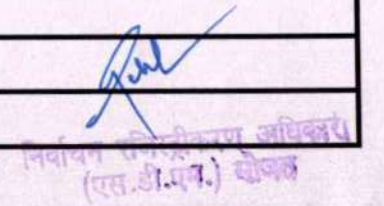 निर्वाचन रजिस्ट्रीकरण अधिकारी
(एस.डी.एम.)